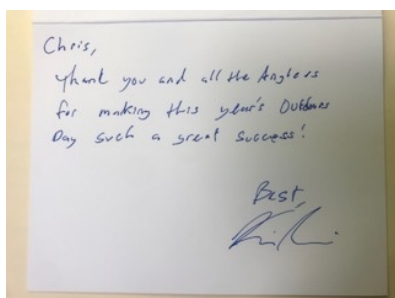 Chris,
Thank you and all the Anglers
for making this year's Outdoor
Day such a great success!
Best,